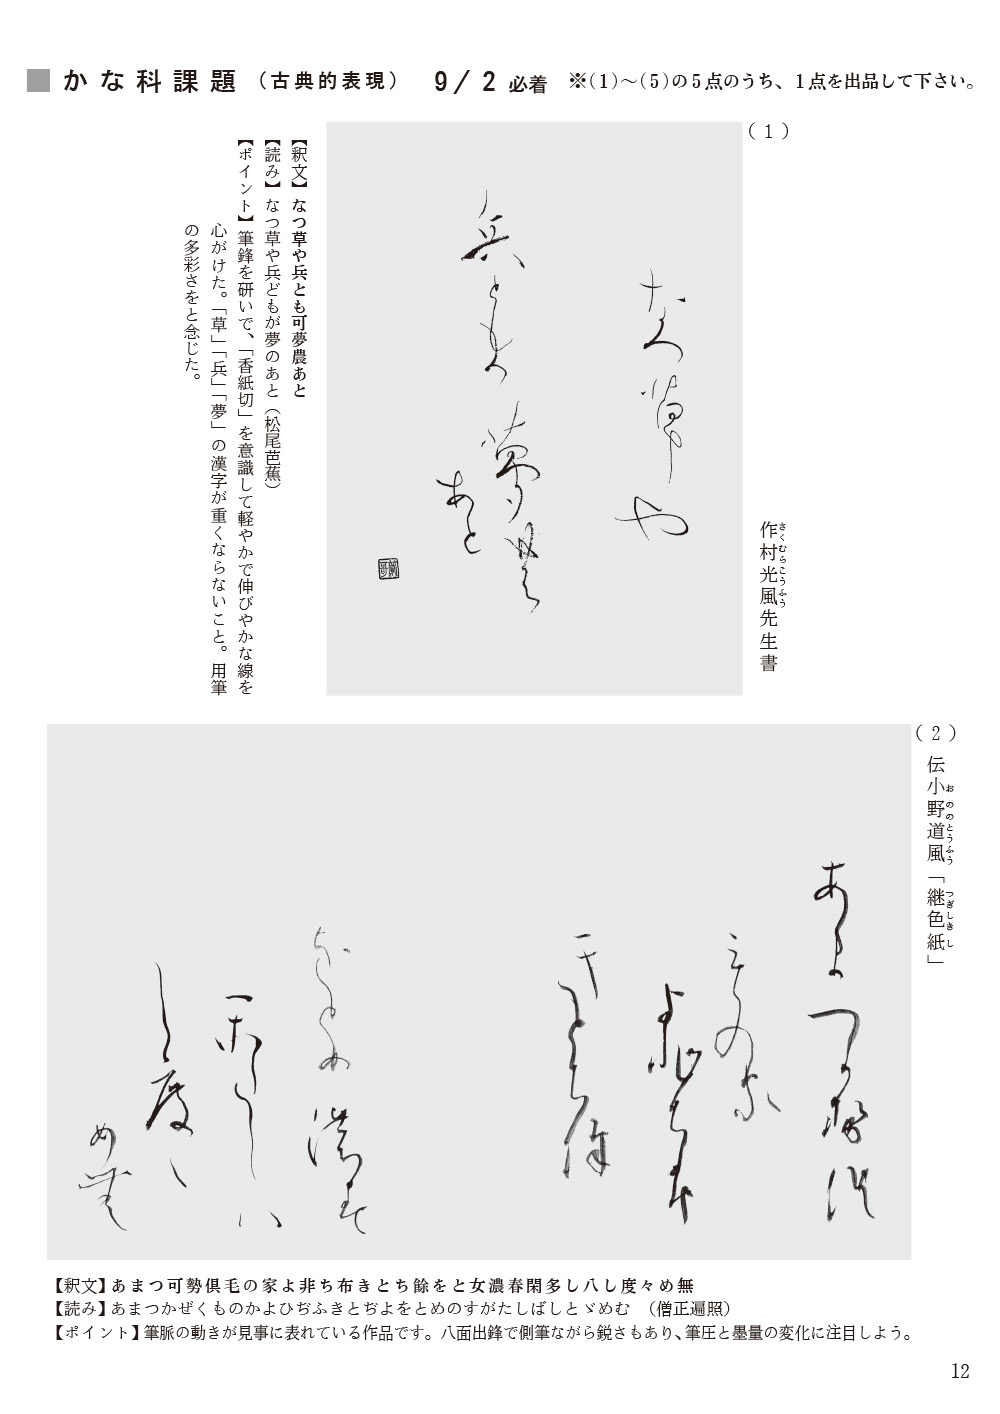 かな科課題（古典的表現） 9/2必着 ※(1)〜(5)の5点のうち、1点を出品して下さい。
(1)
作村光風先生書
さくむらこうふう
なつ草や
兵とも可
夢農
あと
【釈文】なつ草や兵とも可夢農あと
【読み】なつ草や兵どもが夢のあと（松尾芭蕉）
【ポイント】筆鋒を研いで、「香紙切」を意識して軽やかで伸びやかな線を
心がけた。「草」「兵」「夢」の漢字が重くならないこと。用筆
の多彩さをと念じた。
(2)
伝小野道風「継色紙」
おののとうふう つぎしきし
あまつ可勢倶
毛の家
よ非ち布
きとち餘
をとめ濃春
閑多し八
し度々
め無
【釈文】あまつ可勢倶毛の家よ非ち布きとち餘をと女濃春閑多し八し度々め無
【読み】あまつかぜくものかよひぢふきとぢよをとめのすがたしばしとゞめむ （僧正遍照）
【ポイント】筆脈の動きが見事に表れている作品です。八面出鋒で側筆ながら鋭さもあり、筆圧と墨量の変化に注目しよう。
12